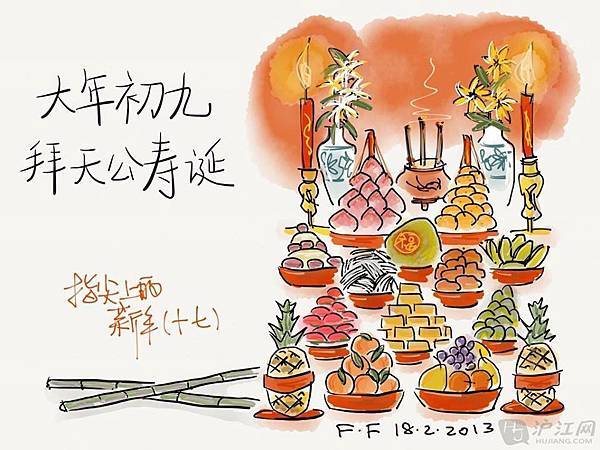 大年初九
拜天公寿诞
指尖上画
新年(十七)
福
F.F 18.2.2013
Hj 沪江网
HUJIANG.COM